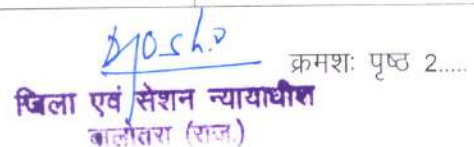 क्रमशः पृष्ठ 2.....
जिला एवं सेशन न्यायाधीश
बालोतरा (राज.)